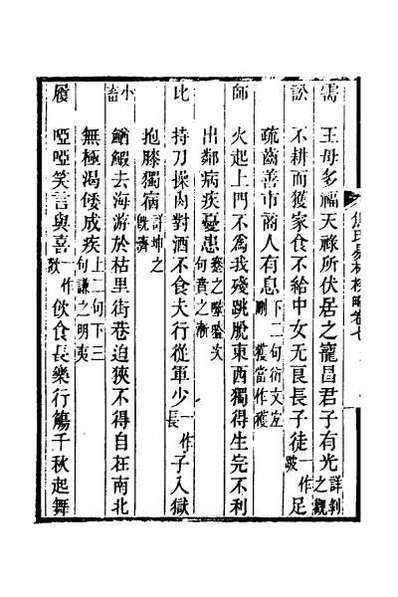 需　王母多福天祿所伏居之寵昌君子有光詳剝之觀
訟　不耕而獲家食不給中女无良長子徒一作跛足
疏齒善市商人有息下二句衍文宜刪　獲當作穫
師　火起上門不為我殘跳脫東西獨得生完不利
出鄰病疾憂患蹇之噬嗑次句賁之漸
比　持刀操肉對酒不食夫行從軍少一作長子入獄
抱膝獨宿詳坤之既濟
小畜　鰌鰕去海游於枯里街巷迫狹不得自在南北
無極渴倭成疾上二句下三句謙之明夷
履　啞啞笑言與喜一作歡飲食長樂行觴千秋起舞
焦氏易林校略卷七